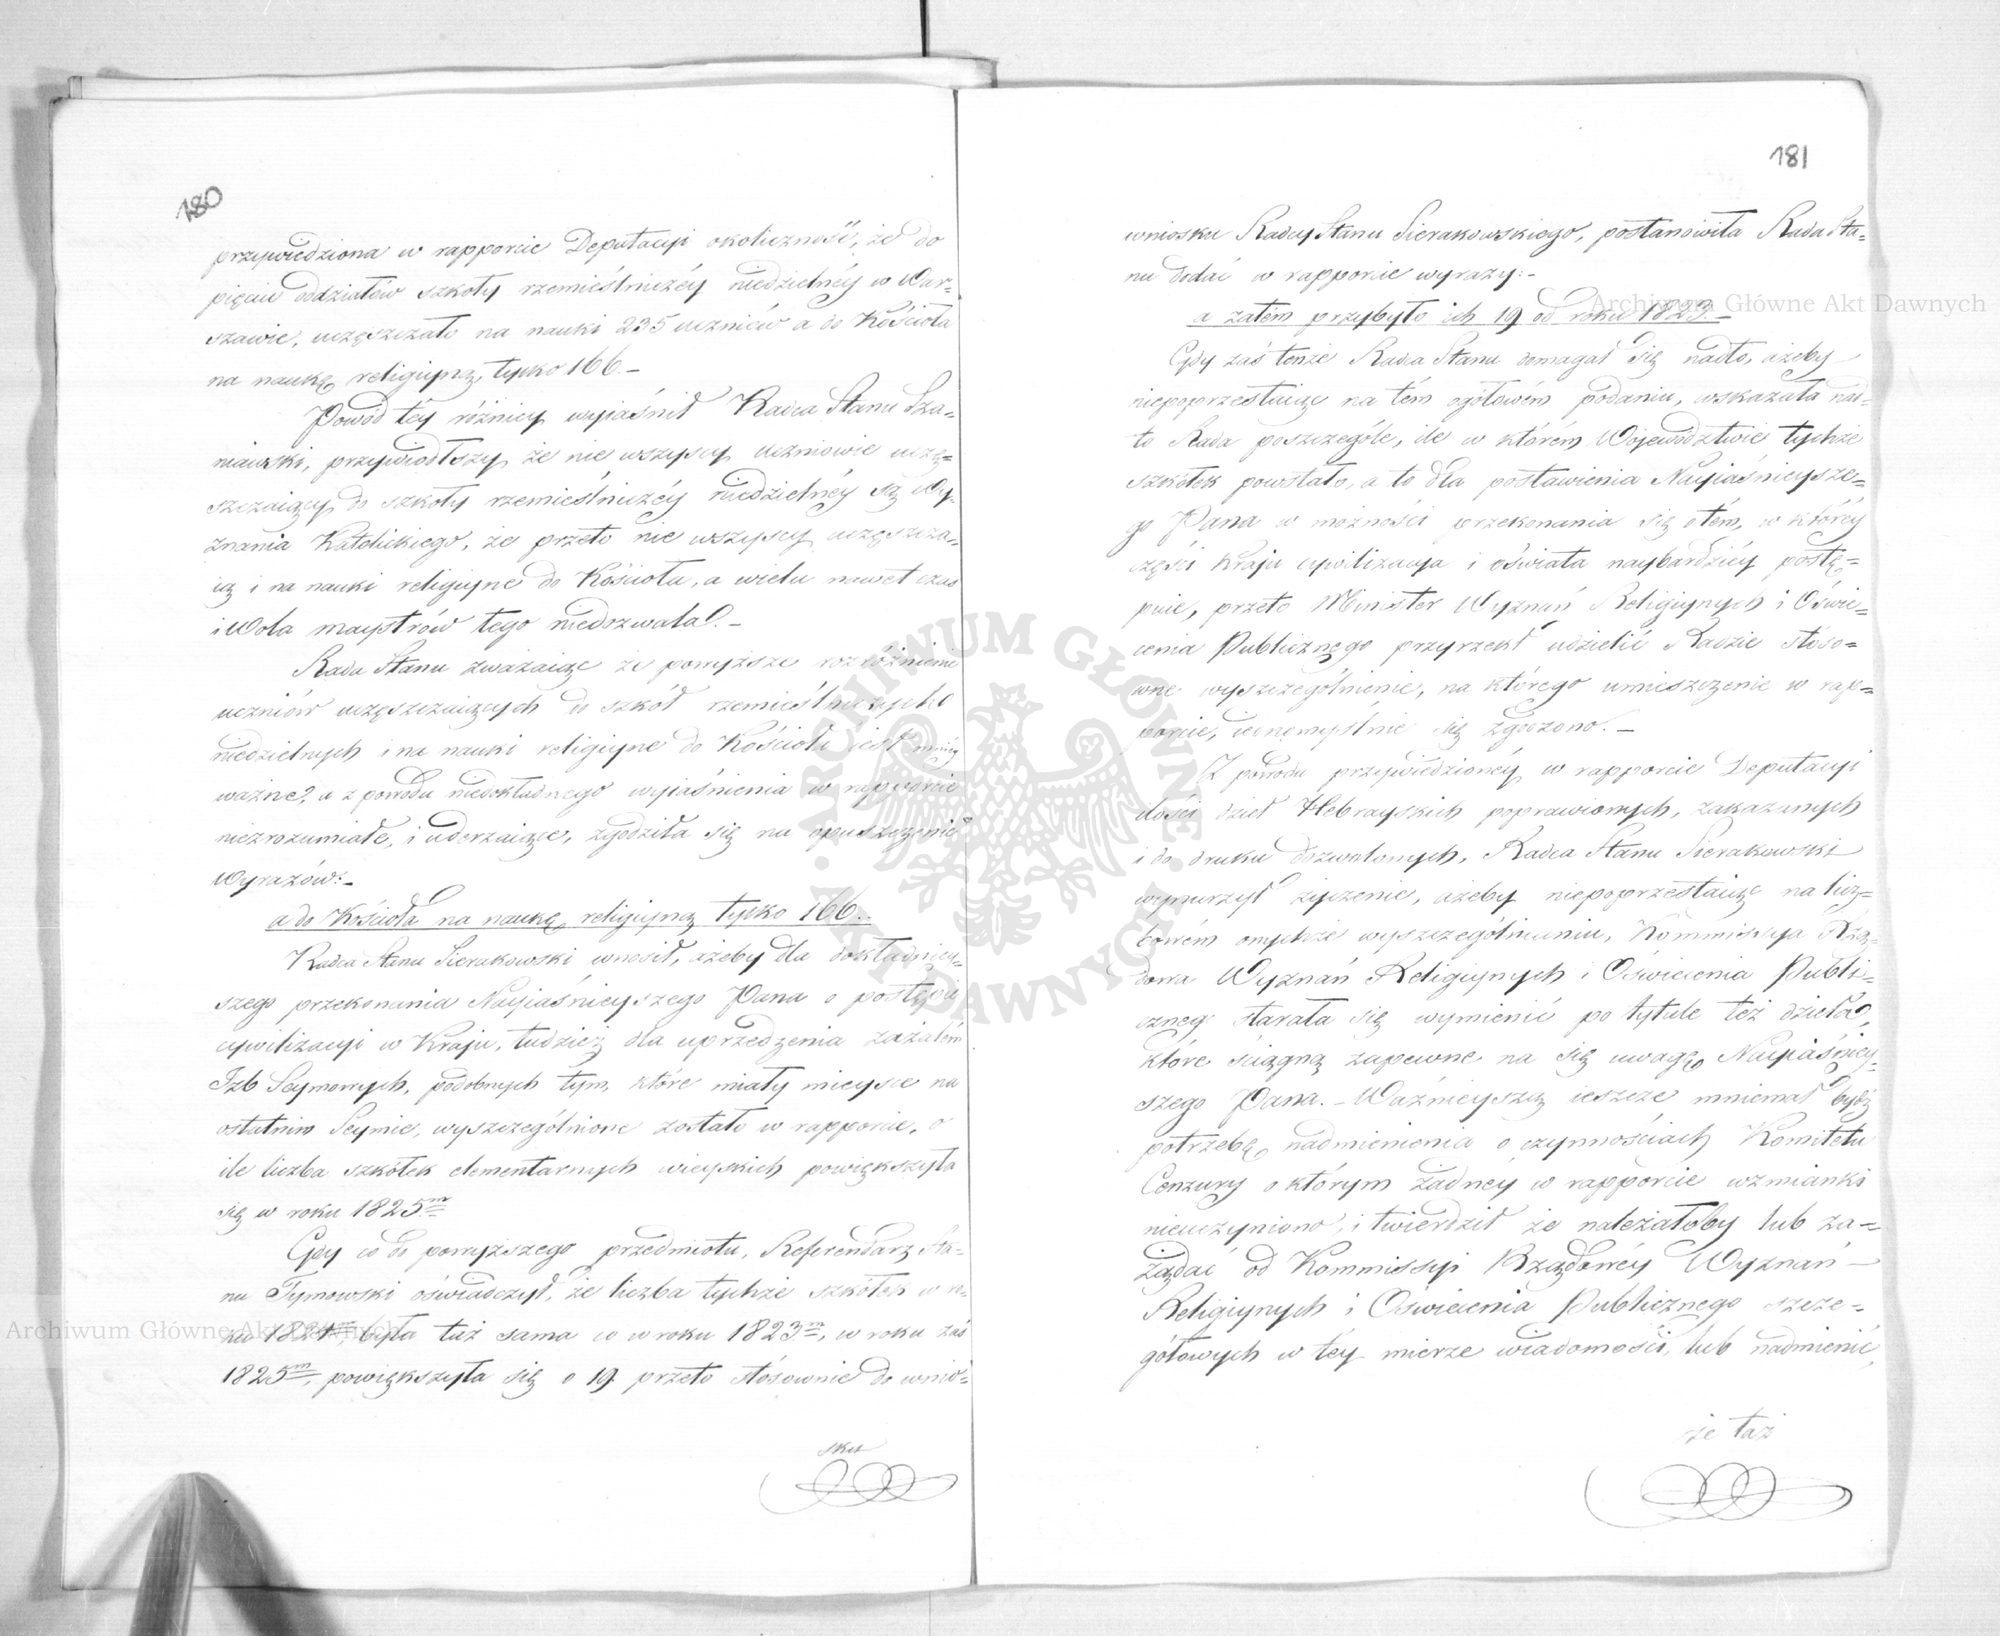 180
przywiedziona w rapporcie Deputacyi okoliczność, że do
pięciu oddziałów szkoły rzemieślniczéy niedzielnéy w War-
szawie, uczęszczało na nauki 235 uczniów a do Kościoła
na naukę religiyną tylko 166.-
Powód téy różnicy wyiaśnił Radca Stanu Sza-
niawski, przywiodłszy że nie wszyscy uczniowie uczę-
szczaiący do szkoły rzemieślniczéy niedzielnéy są Wy-
znania Katolickiego, że przeto nie wszyscy uczęszcza-
ią i na nauki religiyne do Kościoła, a wielu nawet czas
i Wola maystrów tego niedozwala.-
Rada Stanu zważaiąc że powyższe rozróżnienie
uczniów uczęszczaiących do szkół rzemieślniczych
niedzielnych i na nauki religiyne do Kościoła iest mniéy
ważne, a z powodu niedokładnego wyiaśnienia w rapporcie
niezrozumiałe, i uderzaiące, zgodziła się na opuszczenie
Wyrazów:-
a do Kościoła na naukę religiyną tylko 166.-
Radca Stanu Sierakowski wnosił, ażeby dla dokładniey-
szego przekonania Nayiaśnieyszego Pana o postępie
cywilizacyi w Kraju, tudzież dla uprzedzenia zażaleń
Izb Seymowych, podobnych tym, które miały mieysce na
ostatnim Seymie, wyszczególnione zostało w rapporcie, o
ile liczba szkółek elementarnych wieyskich powiększyła
się w roku 1825m
Gdy co do powyższego przedmiotu, Referendarz Sta-
nu Tymowski oświadczył, że liczba tychże szkółek w ro-
ku 1824m, była taż sama co w roku 1823m, w roku zaś
1825m, powiększyła się o 19 przeto stósownie do wnio-
sku
181
wniosku Radcy Stanu Sierakowskiego, postanowiła Rada Sta-
nu dodać w rapporcie wyrazy:-
a zatém przybyło ich 19 od roku 1823.-
Gdy zaś tenże Radca Stanu domagał się nadto, ażeby
niepoprzestaiąc na tém ogółowém podaniu, wskazała nad-
to Rada poszczególe, ile w którém Województwie tychże
szkółek powstało, a to dla postawienia Nayiaśnieysze-
go Pana w możności przekonania się o tém, w któréy
części Kraju cywilizacya i oświata naybardziéy postę-
puie, przeto Minister Wyznań Religiynych i Oświe-
cenia Publicznego przyrzekł udzielić Radzie stóso-
wne wyszczególnienie, na którego umieszczenie w rap-
porcie, iednomyślnie się zgodzono.-
Z powodu przywiedzionéy w rapporcie Deputacyi
ilości dzieł Hebrayskich poprawionych, zakazanych
i do druku dozwolonych, Radca Stanu Sierakowski
wynurzył życzenie, ażeby niepoprzestaiąc na licz-
bowém onychże wyszczególnianiu, Kommissya Rzą-
dowa Wyznań Religiynych i Oświecenia Publi-
cznego starała się wymienić po tytule też dzieła,
które ściągną zapewne na się uwagę Nayiaśniey-
szego Pana.- Ważnieyszą ieszcze mniemał być
potrzebę nadmienienia o czynnościach Komitetu
Cenzury o którym żadnéy w rapporcie wzmianki
nieuczyniono, i twierdził że należałoby lub za-
żądać od Kommissyi Rządowéy Wyznań
Religiynych i Oświecenia Publicznego szcze-
gółowych w téy mierze wiadomości, lub nadmienić,
że taż
Archiwum Główne Akt Dawnych
Archiwum Główne Akt Dawnych
ARCHIWUM GŁÓWNE AKT DAWNYCH